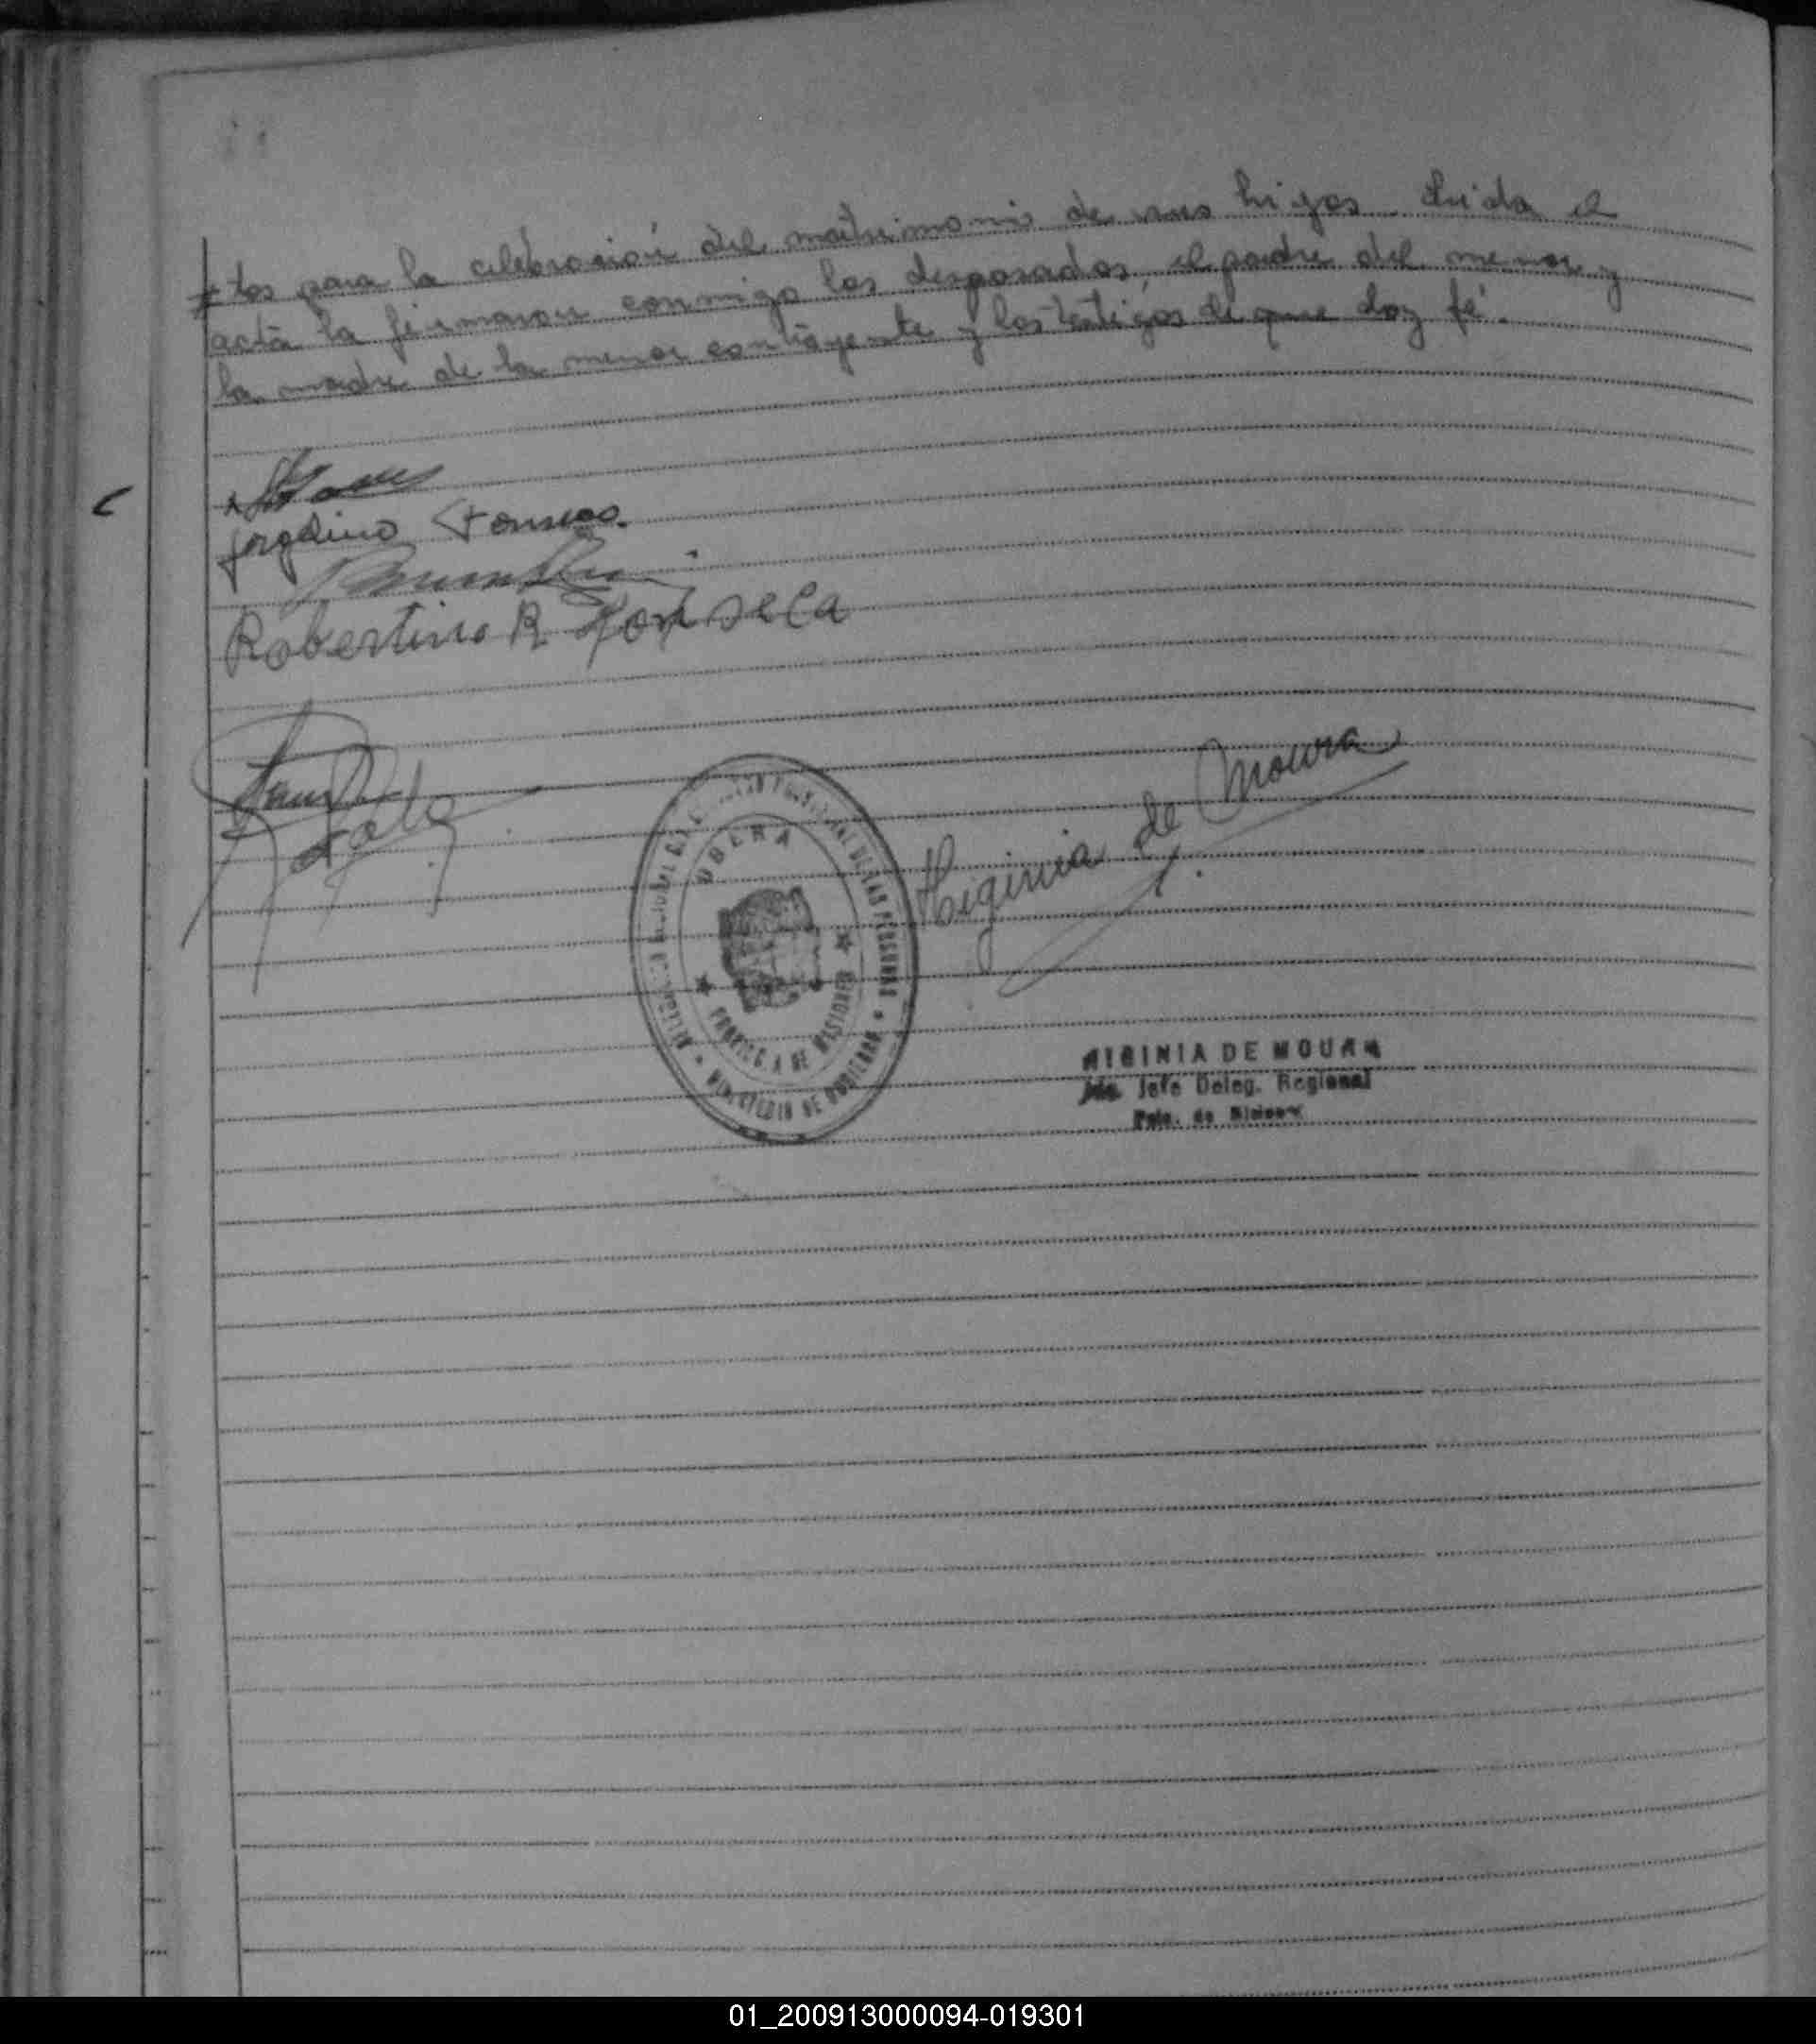 tos para la celebración del matrimonio de sus higos. Leida el
acta la firmaron conmigo los desposados, el padre del menor y
la madre de la menor contrayente y los testigos de que doy fé.
Jorgelino Fonseca.
Robertino R Fonseca
Higinia de Moura
OBERA
DE LAS PERSONAS
PROVINCIA DE MISIONES
MINISTERIO DE GOBIERNO
HIGINIA DE MOURA
Jefe Deleg. Regional
01_200913000094-019301